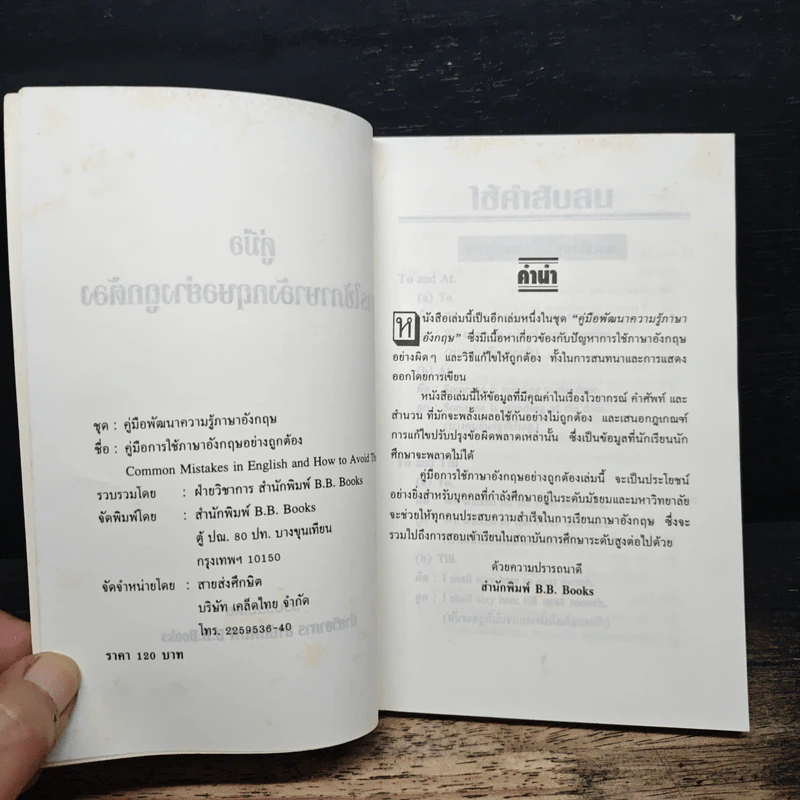 ชุด : คู่มือพัฒนาความรู้ภาษาอังกฤษ
ชื่อ : คู่มือการใช้ภาษาอังกฤษอย่างถูกต้อง
Common Mistakes in English and How to Avoid
รวบรวมโดย : ฝ่ายวิชาการ สำนักพิมพ์ B.B. Books
จัดพิมพ์โดย : สำนักพิมพ์ B.B. Books
ตู้ ปณ. 80 ปท. บางขุนเทียน
กรุงเทพฯ 10150
จัดจำหน่ายโดย : สายส่งศึกษิต
บริษัท เคล็ดไทย จำกัด
โทร. 2259536-40
ราคา 120 บาท
คำนำ
หนังสือเล่มนี้เป็นอีกเล่มหนึ่งในชุด "คู่มือพัฒนาความรู้ภาษา
อังกฤษ" ซึ่งมีเนื้อหาเกี่ยวข้องกับปัญหาการใช้ภาษาอังกฤษ
อย่างผิดๆ และวิธีแก้ไขให้ถูกต้อง ทั้งในการสนทนาและการแสดง
ออกโดยการเขียน
หนังสือเล่มนี้ให้ข้อมูลที่มีคุณค่าในเรื่องไวยากรณ์ คำศัพท์ และ
สำนวน ที่มักจะพลั้งเผลอใช้กันอย่างไม่ถูกต้อง และเสนอกฎเกณฑ์
การแก้ไขปรับปรุงข้อผิดพลาดเหล่านั้น ซึ่งเป็นข้อมูลที่นักเรียนนัก
ศึกษาจะพลาดไม่ได้
คู่มือการใช้ภาษาอังกฤษอย่างถูกต้องเล่มนี้ จะเป็นประโยชน์
อย่างยิ่งสำหรับบุคคลที่กำลังศึกษาอยู่ในระดับมัธยมและมหาวิทยาลัย
จะช่วยให้ทุกคนประสบความสำเร็จในการเรียนภาษาอังกฤษ ซึ่งจะ
รวมไปถึงการสอบเข้าเรียนในสถาบันการศึกษาระดับสูงต่อไปด้วย
ด้วยความปรารถนาดี
สำนักพิมพ์ B.B. Books